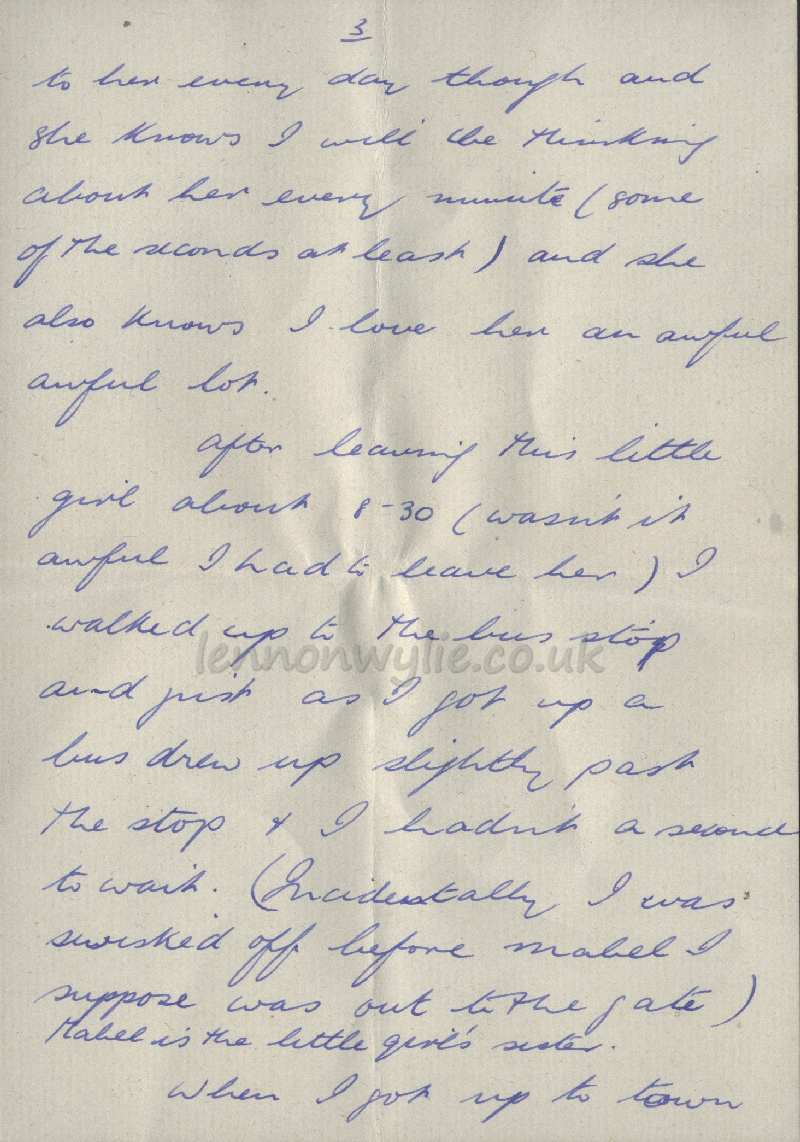 3
to her every day though and
she knows I will be thinking
about her every minute (some
of the seconds at least) and she
also knows I love her an awful
awful lot.
After leaving this little
girl about 8-30 (wasn't it
awful I had to leave her) I
walked up to the bus stop
and just as I got up a
bus drew up slightly past
the stop & I hadn't a second
to wait. (Incidentally I was
swisked off before Mabel I
suppose was out to the gate)
Mabel is the little girl's sister.
When I got up to town
lennonwylie.co.uk